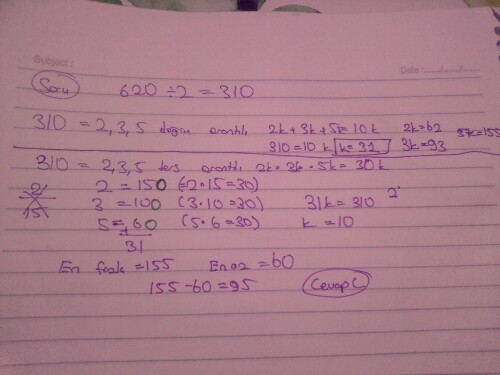 Subject:
Date:
Soru 620 ÷ 2 = 310
310 = 2,3,5 doğru orantılı 2k + 3k + 5k = 10k 2k = 62 5k = 155
310 = 10k k = 31 3k = 93
310 = 2,3,5 ters orantılı 2k · 3k · 5k = 30k
2 = 150 (2 · 15 = 30)
3 = 100 (3 · 10 = 30) 31k = 310
5 = 60 (5 · 6 = 30) k = 10
+
31
En fazla = 155 En az = 60
155 - 60 = 95 Cevap C